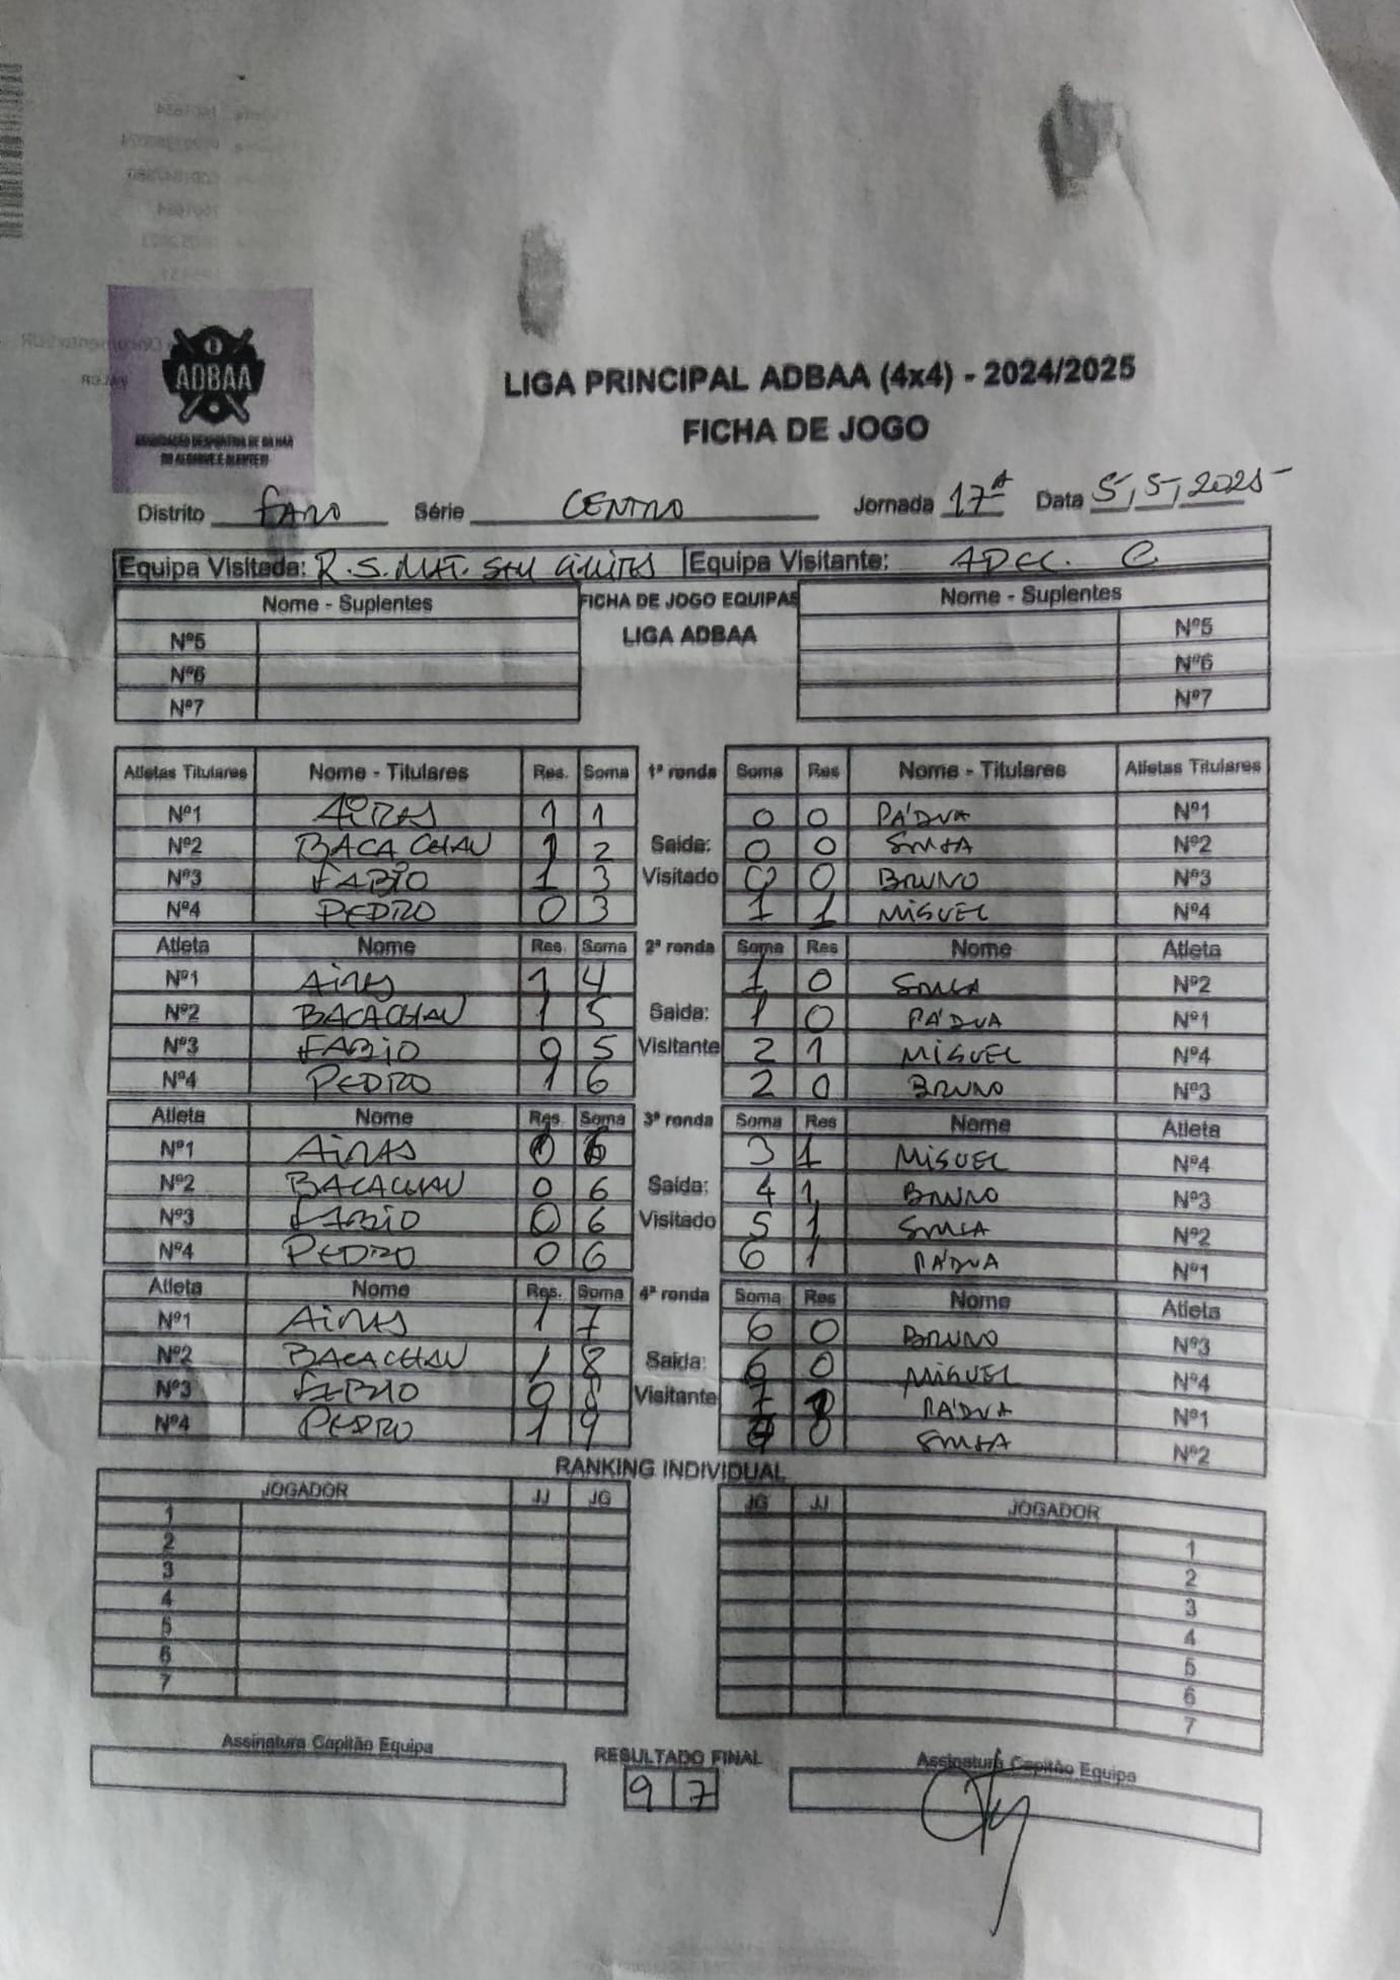 ADBAA
ASSOCIAÇÃO DESPORTIVA DE BILHAR
DO ALGARVE E ALENTEJO
LIGA PRINCIPAL ADBAA (4x4) - 2024/2025
FICHA DE JOGO
Distrito FARO Série CENTRO Jornada 17ª Data 5/5/2025
Equipa Visitada: R.S. MAT. SEM LIMITES Equipa Visitante: ADEC. C
Nome - Suplentes FICHA DE JOGO EQUIPAS Nome - Suplentes
LIGA ADBAA
Nº5 Nº5
Nº6 Nº6
Nº7 Nº7
Atletas Titulares Nome - Titulares Res. Soma 1ª ronda Soma Res Nome - Titulares Atletas Titulares
Nº1 AIRES 1 1 0 0 PÁDUA Nº1
Nº2 BACACHAU 1 2 Saída: 0 0 Nº2
Nº3 FABIO 1 3 Visitado 0 0 BRUNO Nº3
Nº4 PEDRO 0 3 1 1 MIGUEL Nº4
Atleta Nome Res. Soma 2ª ronda Soma Res Nome Atleta
Nº1 AIRES 1 4 1 0 Nº2
Nº2 BACACHAU 1 5 Saída: 1 0 PÁDUA Nº1
Nº3 FABIO 0 5 Visitante 2 1 MIGUEL Nº4
Nº4 PEDRO 1 6 2 0 BRUNO Nº3
Atleta Nome Res. Soma 3ª ronda Soma Res Nome Atleta
Nº1 AIRES 0 6 3 1 MIGUEL Nº4
Nº2 BACACHAU 0 6 Saída: 4 1 BRUNO Nº3
Nº3 FABIO 0 6 Visitado 5 1 Nº2
Nº4 PEDRO 0 6 6 1 PÁDUA Nº1
Atleta Nome Res. Soma 4ª ronda Soma Res Nome Atleta
Nº1 AIRES 1 7 6 0 BRUNO Nº3
Nº2 BACACHAU 1 8 Saída: 6 0 MIGUEL Nº4
Nº3 FABIO 0 8 Visitante 7 1 PÁDUA Nº1
Nº4 PEDRO 1 9 7 0 Nº2
RANKING INDIVIDUAL
JOGADOR JJ JG JG JJ JOGADOR
1 1
2 2
3 3
4 4
5 5
6 6
7 7
Assinatura Capitão Equipa RESULTADO FINAL Assinatura Capitão Equipa
9 7